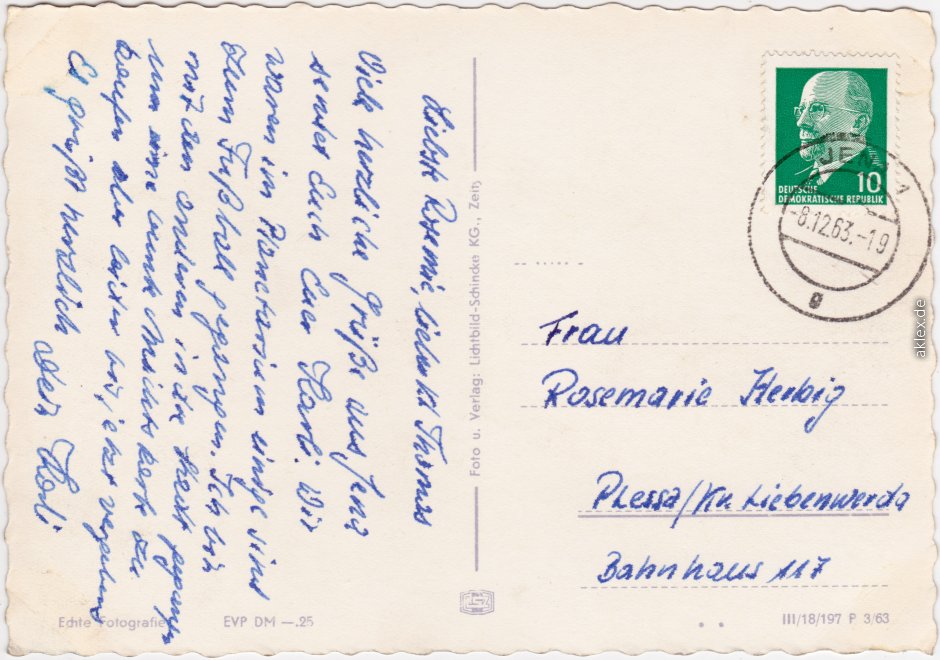 Liebste Rosemie, liebster Thomas
Viele herzliche Grüße aus Jena
sendet Euch Euer Karli. Wir
waren im Planetarium einige sind
zum Fußball gegangen. Ich bin
mit den anderen in die Stadt gegangen
um eine
kaufen aber leider bis jetzt vergebens
Es grüßt herzlich Dein
Foto u. Verlag: Lichtbild-Schincke KG., Zeitz
10
DEUTSCHE
DEMOKRATISCHE REPUBLIK
JENA 1
-8.12.63.-19
g
Frau
Rosemarie Herbig
Plessa/Kr. Liebenwerda
Bahnhaus 117
Echte Fotografie
EVP DM —.25
III/18/197 P 3/63
aklex.de